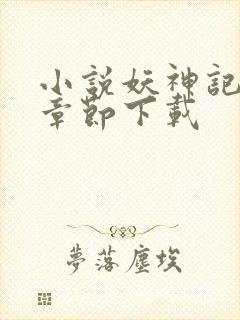 小説妖神記
章節下載
夢落塵埃